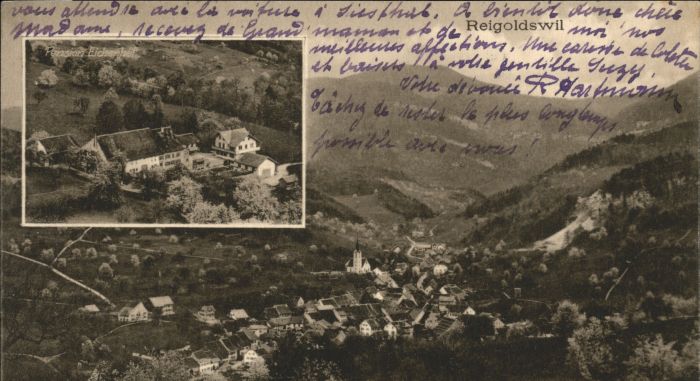 vous attendre avec la voiture à Liesthal. A bientôt donc chère
Madame, recevez de Grand'maman et de moi nos
meilleures affections. Une caresse de
et baisers à votre gentille Suzy.
Votre dévouée R Hartmann
Tâchez de rester le plus longtemps
possible avec nous!
Reigoldswil
Pension Eichenhof